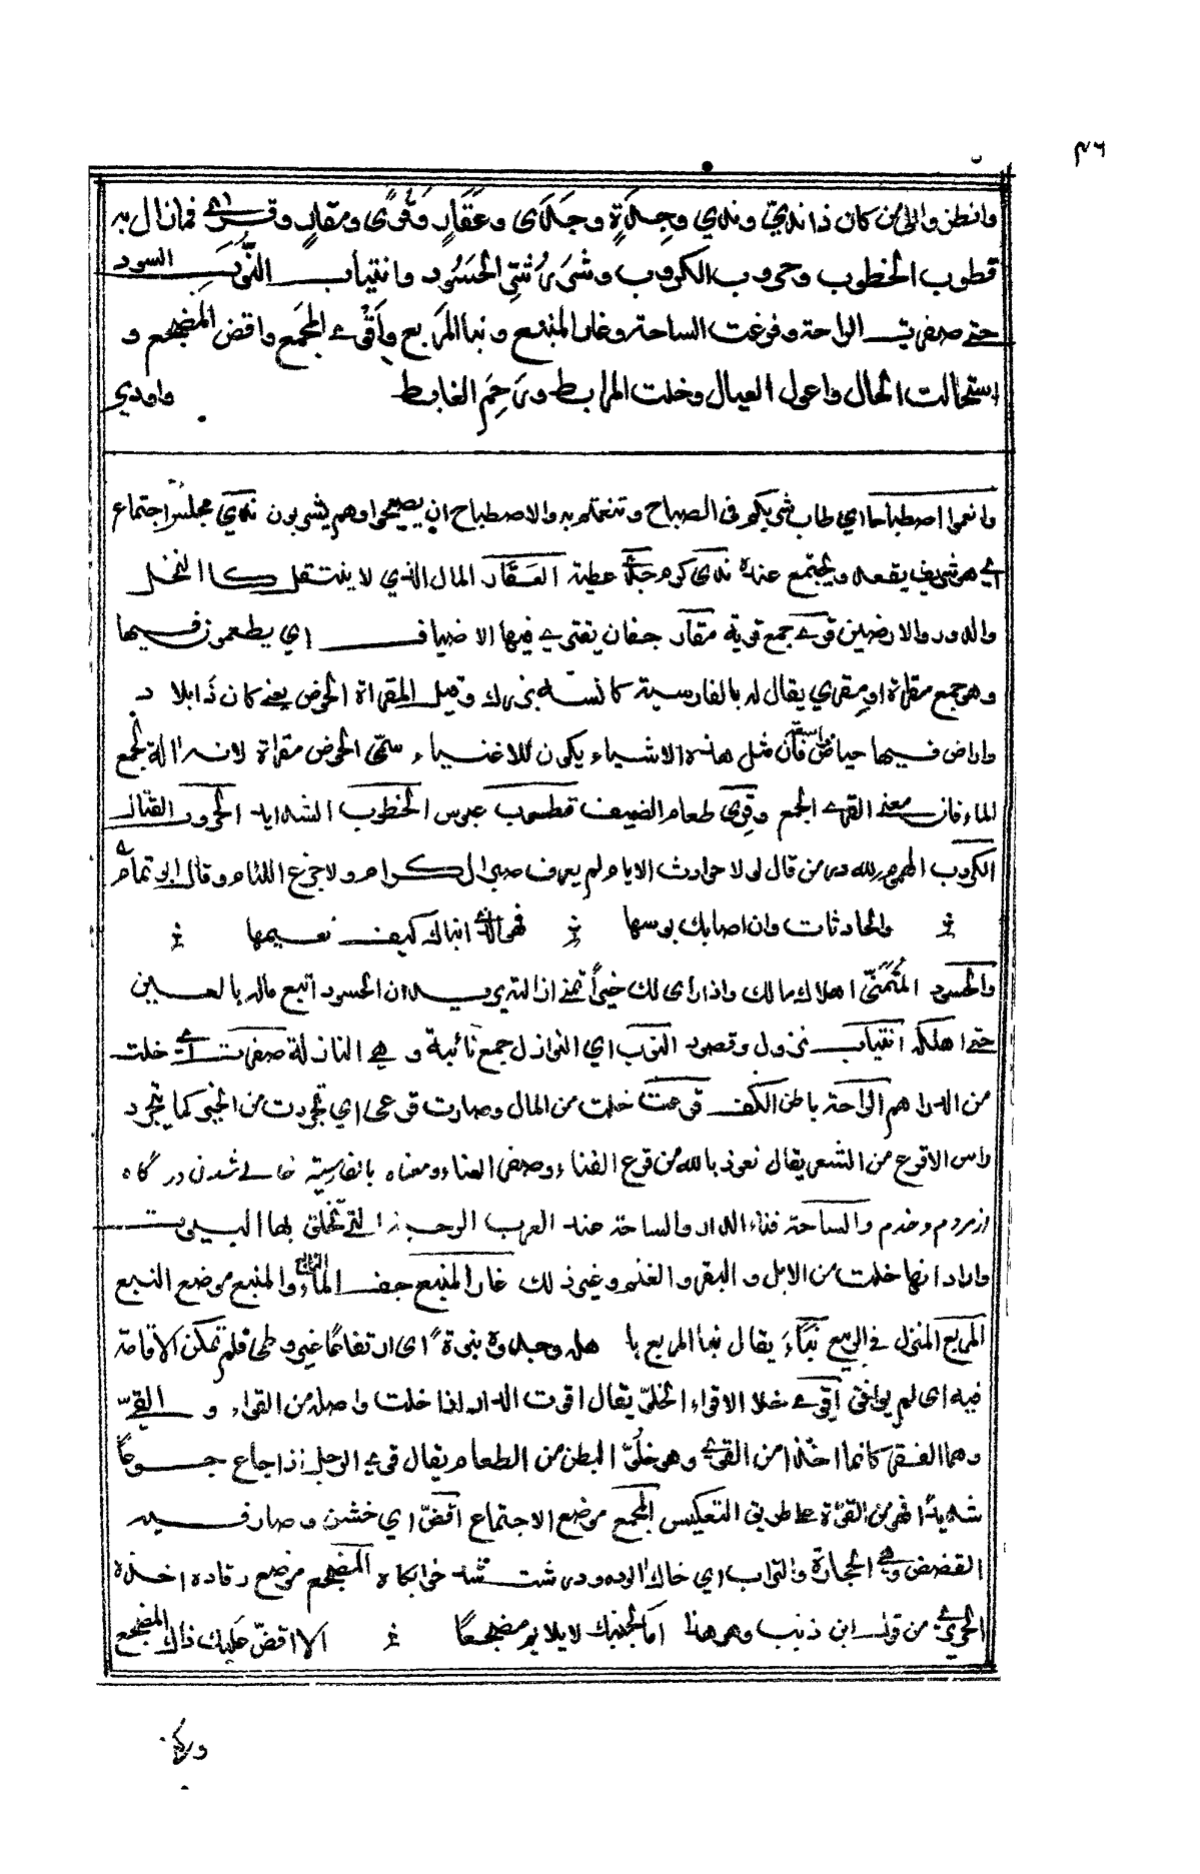 ٤٦
وانظروا الى من كان ذا ندي وندي وجدة وجدى وعقار وقرى ومقار وقرى فما زال به
قطوب الخطوب وحروب الكروب وشرر شر الحسود وانتياب النوب السود
حتى صفرت الراحة وقرعت الساحة وغار المنبع ونبا المربع واقوى المجمع واقض المضجع و
استحالت الحال واعول العيال وخلت المرابط ورحم الغابط واودى
وانعموا اصطباحا اي طاب شربكم فى الصباح وتنعمتم به والاصطباح ان يصبحوا وهم يشربون ندي مجلس اجتماع
اي هو شريف يقعد ويجتمع عنده ندى كرم جدى عطية العقار المال الذي لا ينتقل كالنخل
والدور والارضين قرى جمع قرية مقار جفان يقترى فيها الاضياف اي يطعمون فيها
وهو جمع مقراة او مقرى يقال له بالفارسية كاسه بزرك وقيل المقراة الحوض يعنى كان ذا بلاد
واراض فيها حياض فان مثل هذه الاشياء يكون للاغنياء سمى الحوض مقراة لانه آلة لجمع
الماء فان معنى القرى الجمع وقرى طعام الضيف قطوب عبوس الخطوب الشدايد الحروب القتال
الكروب الهموم لله در من قال لولا حوادث الايام لم يعرف صبر الكرام ولا جزع اللئام وقال ابو تمام
والحادثات وان اصابك بوسها فهو الذى انباك كيف نعيمها
والحسود المتمنى اهلاك مالك واذا راى لك خيرا تمنى ان الحسود اتبع ماله بالعين
حتى اهلكه انتياب نزول وقصود النوب اي النوازل جمع نائبة وهي النازلة صفرت اي خلت
من الدراهم الراحة باطن الكف قرعت خلت من المال وصارت قرعى اي تجردت من الخير كما يتجرد
راس الاقرع من الشعر يقال نعوذ بالله من قرع الفناء وصفر الاناء ومعناه بالفارسية خالى شدن درگاه
از مردم وخدم والساحة فناء الدار والساحة عند العرب الرحبة التى تحلق بها البيوت
واراد انها خلت من الابل والبقر والغنم وغير ذلك غار المنبع جف الماء والمنبع موضع النبع
المربع المنزل فى الربيع نباء يقال نبا المربع باهله وجد به نبوة اى ارتفاعا غير وطى فلم تمكن الاقامة
فيه اى لم يوافق اقوى خلا الاقواء الخلو يقال اقوت الدار اذا خلت واصله من القواء و القى
وهما الفقر كانما اخذا من القوى وهو خلو البطن من الطعام يقال قوى الرجل اذا جاع جوعا
شديدا فهو من القوة على طريق التعكيس المجمع موضع الاجتماع اقض اي خشن وصار فيه
القضض وهى الحجارة والتراب اي خاك الود ودرشت شد خوابگاه المضجع موضع رقاده اخذه
الحريري من قول ابن ذئيب وهو هذا اما لجنبك لا يلايم مضجعا الا اقض عليك ذاك المضجع